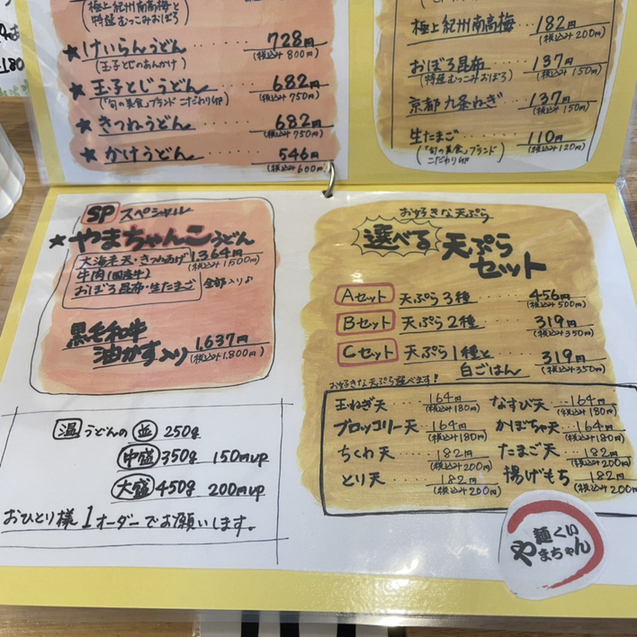 極上紀州南高梅と
(特選 むっこみおぼろ)
★けいらんうどん 728円
(玉子とじのあんかけ) (税込み800円)
★玉子とじうどん 682円
(「旬の美食」ブランド こだわり卵) (税込み750円)
★きつねうどん 682円
(税込み750円)
★かけうどん 546円
(税込み600円)
極上紀州南高梅 182円
(税込み200円)
おぼろ昆布 137円
(特選むっこみおぼろ) (税込み150円)
京都九条ねぎ 137円
(税込み150円)
生たまご 110円
(「旬の美食」ブランド こだわり卵) (税込み120円)
180
SP スペシャル
★やまちゃんこうどん
大海老天・きつねあげ 1,364円
牛肉(国産牛) (税込み1500円)
おぼろ昆布・生たまご 全部入り♪
黒毛和牛
油かす入り 1,637円
(税込み1,800円)
温 うどんの 並 250g
中盛 350g 150円UP
大盛 450g 200円UP
おひとり様1オーダーでお願いします。
お好きな天ぷら
選べる 天ぷら
セット
Aセット 天ぷら3種 456円
(税込み500円)
Bセット 天ぷら2種 319円
(税込み350円)
Cセット 天ぷら1種と 319円
白ごはん (税込み350円)
お好きな天ぷら選べます!
玉ねぎ天 164円 なすび天 164円
(税込み180円) (税込み180円)
ブロッコリー天 164円 かぼちゃ天 164円
(税込み180円) (税込み180円)
ちくわ天 182円 たまご天 182円
(税込み200円) (税込み200円)
とり天 182円 揚げもち 182円
(税込み200円) (税込み200円)
麺くい
やまちゃん